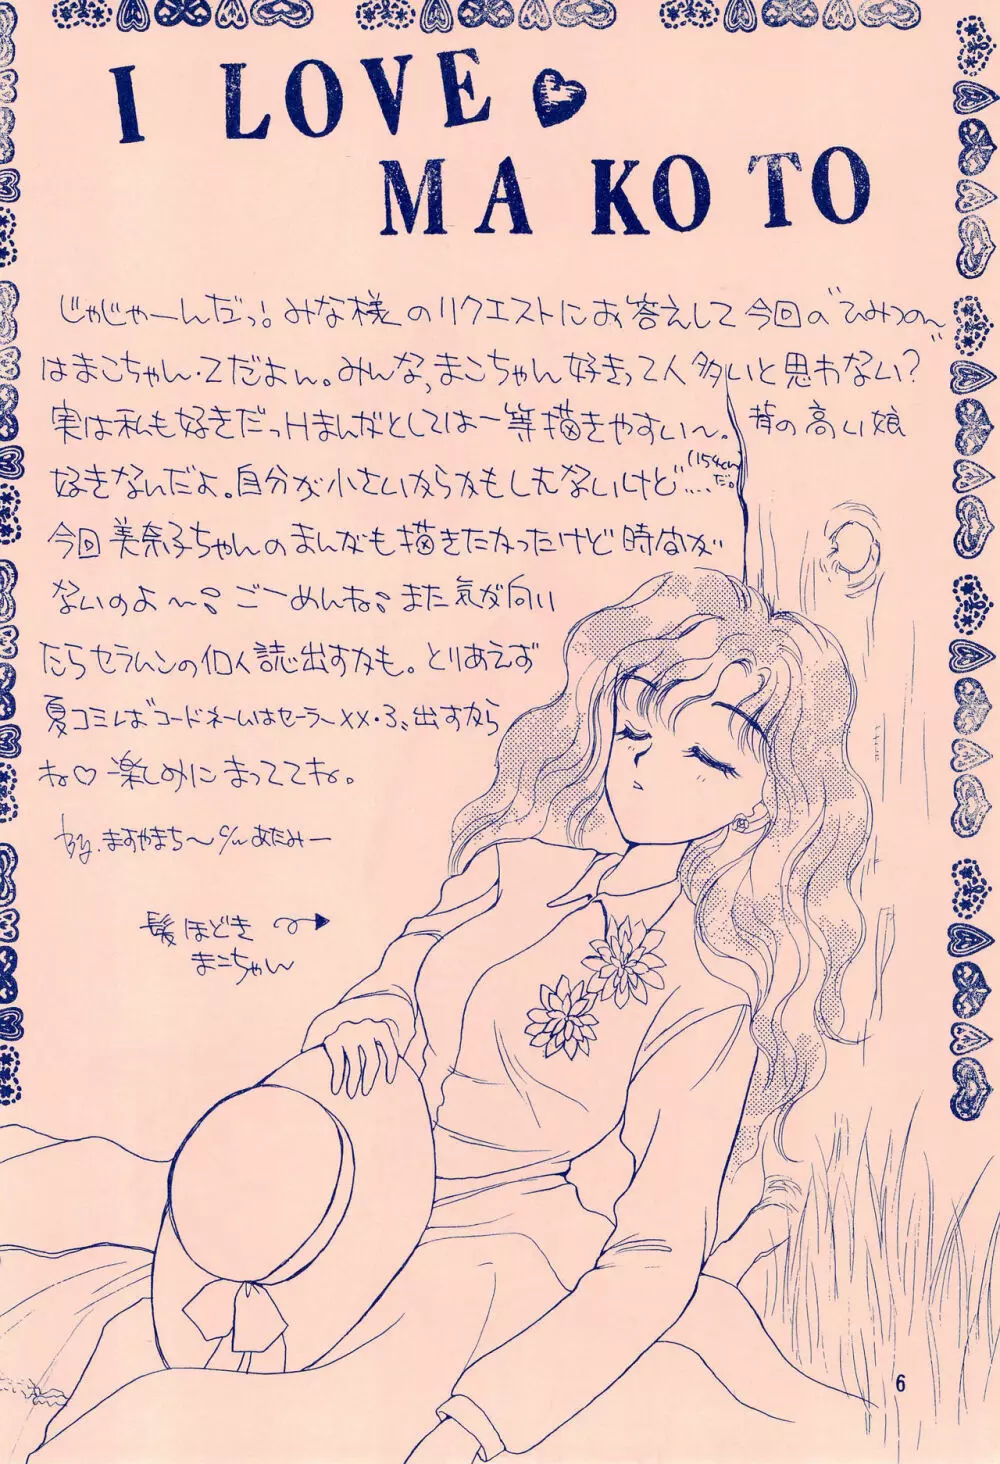 I LOVE
MAKOTO
じゃじゃーんだっ！みな様のリクエストにお答えして今回の“ひみつの〜”
はまこちゃん・Zだよん。みんな、まこちゃん好きって人多いと思わない？
実は私も好きだっHまんがとしては一等描きやすい〜。背の高い娘
好きなんだよ。自分が小さいからかもしんないけど……(154cmだ。)
今回美奈子ちゃんのまんがも描きたかったけど時間が
ないのよ〜 ごーめんね また気が向い
たらセラムンの個人誌出すかも。とりあえず
夏コミは“コードネームはセーラーXX・3”出すから
ね♡楽しみにまっててね。
by.ますやまち〜 あたみー
髪ほどき
まこちゃん
6